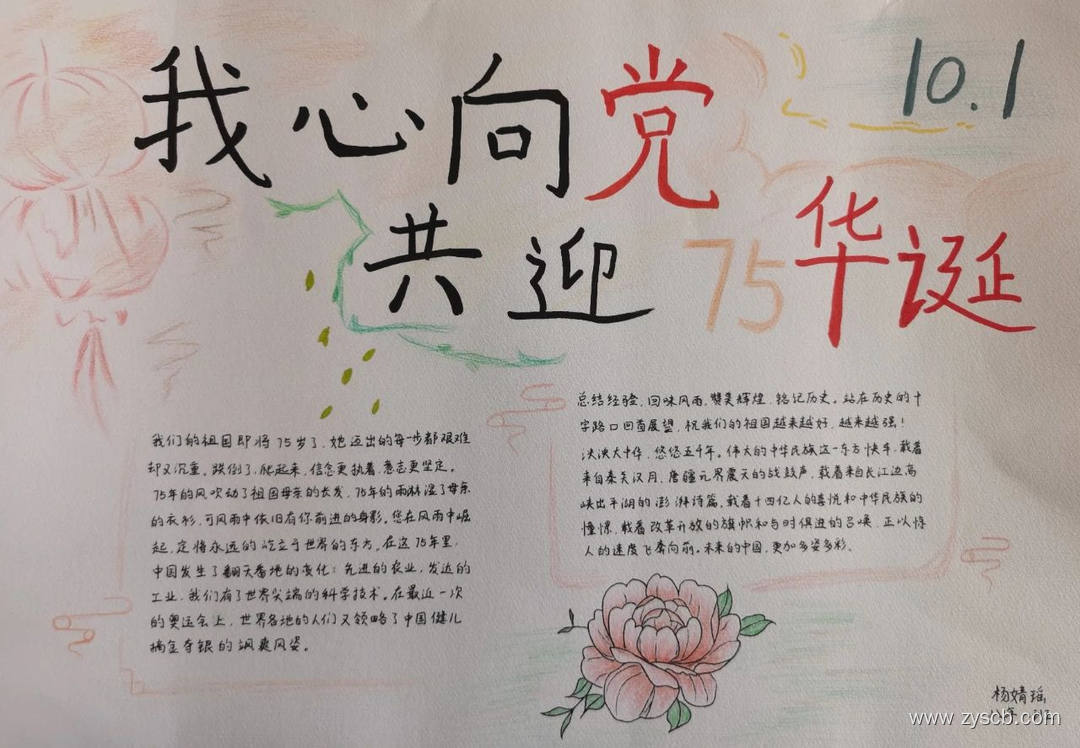 我心向党
10.1
共迎75华诞
我们的祖国即将75岁了，她迈出的每一步都艰难
却又沉重。跌倒了，爬起来，信念更执着，意志更坚定。
75年的风吹动了祖国母亲的长发，75年的雨淋湿了母亲
的衣衫，可风雨中依旧有你前进的身影。您在风雨中崛
起，定将永远的屹立于世界的东方。在这75年里，
中国发生了翻天番地的变化：先进的农业，发达的
工业，我们有了世界尖端的科学技术。在最近一次
的奥运会上，世界各地的人们又领略了中国健儿
摘金夺银的飒爽风姿。
总结经验，回味风雨，赞美辉煌，铭记历史。站在历史的十
字路口回首展望，祝我们的祖国越来越好，越来越强！
泱泱大中华，悠悠五千年。伟大的中华民族这一东方快车，载着
来自秦关汉月，唐疆元界震天的战鼓声，载着来自长江边高
峡出平湖的澎湃诗篇，载着十四亿人的喜悦和中华民族的
憧憬，载着改革开放的旗帜和与时俱进的召唤，正以惊
人的速度飞奔向前。未来的中国，更加多姿多彩。
杨婧瑶
www.zyscb.com